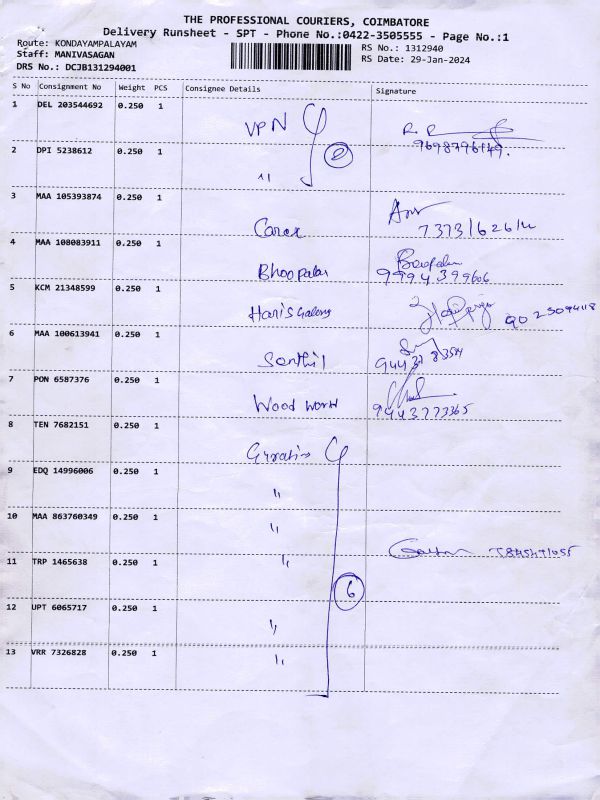 THE PROFESSIONAL COURIERS, COIMBATORE
Delivery Runsheet - SPT - Phone No.:0422-3505555 - Page No.:1
Route: KONDAYAMPALAYAM
Staff: MANIVASAGAN
DRS No.: DCJB131294001
RS No.: 1312940
RS Date: 29-Jan-2024
S No Consignment No Weight PCS Consignee Details Signature
1 DEL 203544692 0.250 1 VPN
2 DPI 5238612 0.250 1 "
2
3 MAA 105393874 0.250 1
4 MAA 108083911 0.250 1 Bhoopalan 9994399606
5 KCM 21348599 0.250 1
6 MAA 100613941 0.250 1 Senthil
7 PON 6587376 0.250 1 Wood World 9443773365
8 TEN 7682151 0.250 1
9 EDQ 14996006 0.250 1 "
10 MAA 863760349 0.250 1 "
11 TRP 1465638 0.250 1 "
6
12 UPT 6065717 0.250 1 "
13 VRR 7326828 0.250 1 "